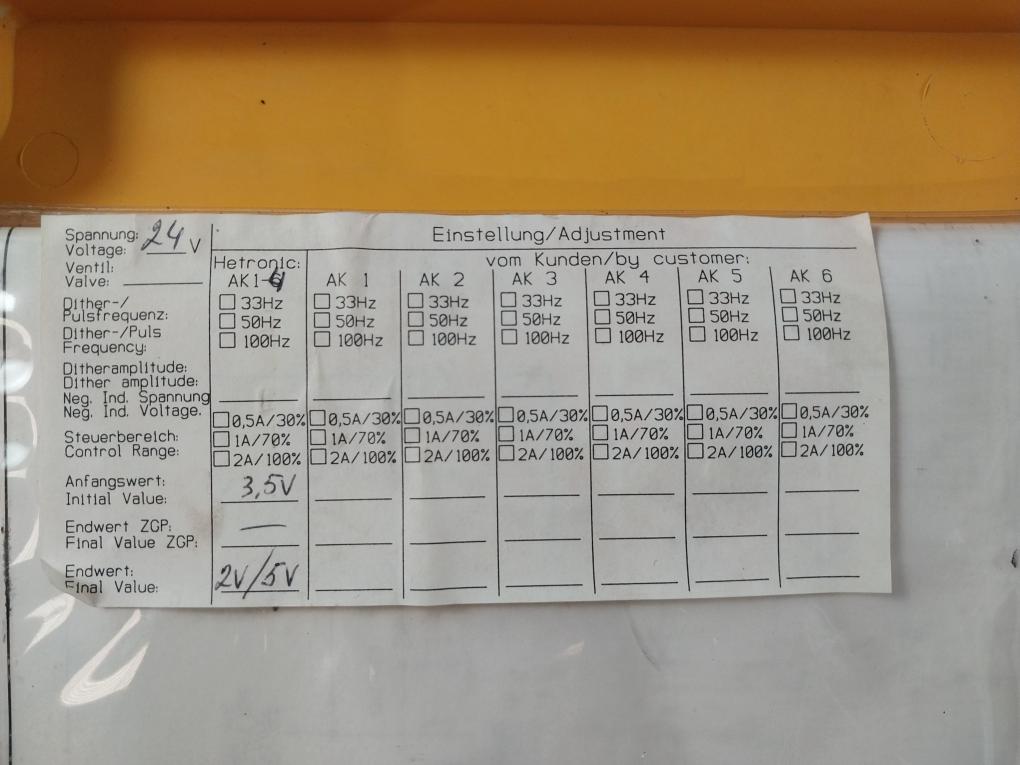 Einstellung/Adjustment
Spannung:
Voltage: 24 V
Hetronic: vom Kunden/by customer:
Ventil:
Valve:
AK1- AK 1 AK 2 AK 3 AK 4 AK 5 AK 6
Dither-/ 33Hz 33Hz 33Hz 33Hz 33Hz 33Hz 33Hz
Pulsfrequenz: 50Hz 50Hz 50Hz 50Hz 50Hz 50Hz 50Hz
Dither-/Puls 100Hz 100Hz 100Hz 100Hz 100Hz 100Hz 100Hz
Frequency:
Ditheramplitude:
Dither amplitude:
Neg. Ind. Spannung
Neg. Ind. Voltage. 0,5A/30% 0,5A/30% 0,5A/30% 0,5A/30% 0,5A/30% 0,5A/30% 0,5A/30%
Steuerbereich: 1A/70% 1A/70% 1A/70% 1A/70% 1A/70% 1A/70% 1A/70%
Control Range: 2A/100% 2A/100% 2A/100% 2A/100% 2A/100% 2A/100% 2A/100%
Anfangswert: 3,5V
Initial Value:
Endwert ZGP: —
Final Value ZGP:
Endwert: 2V/5V
Final Value: